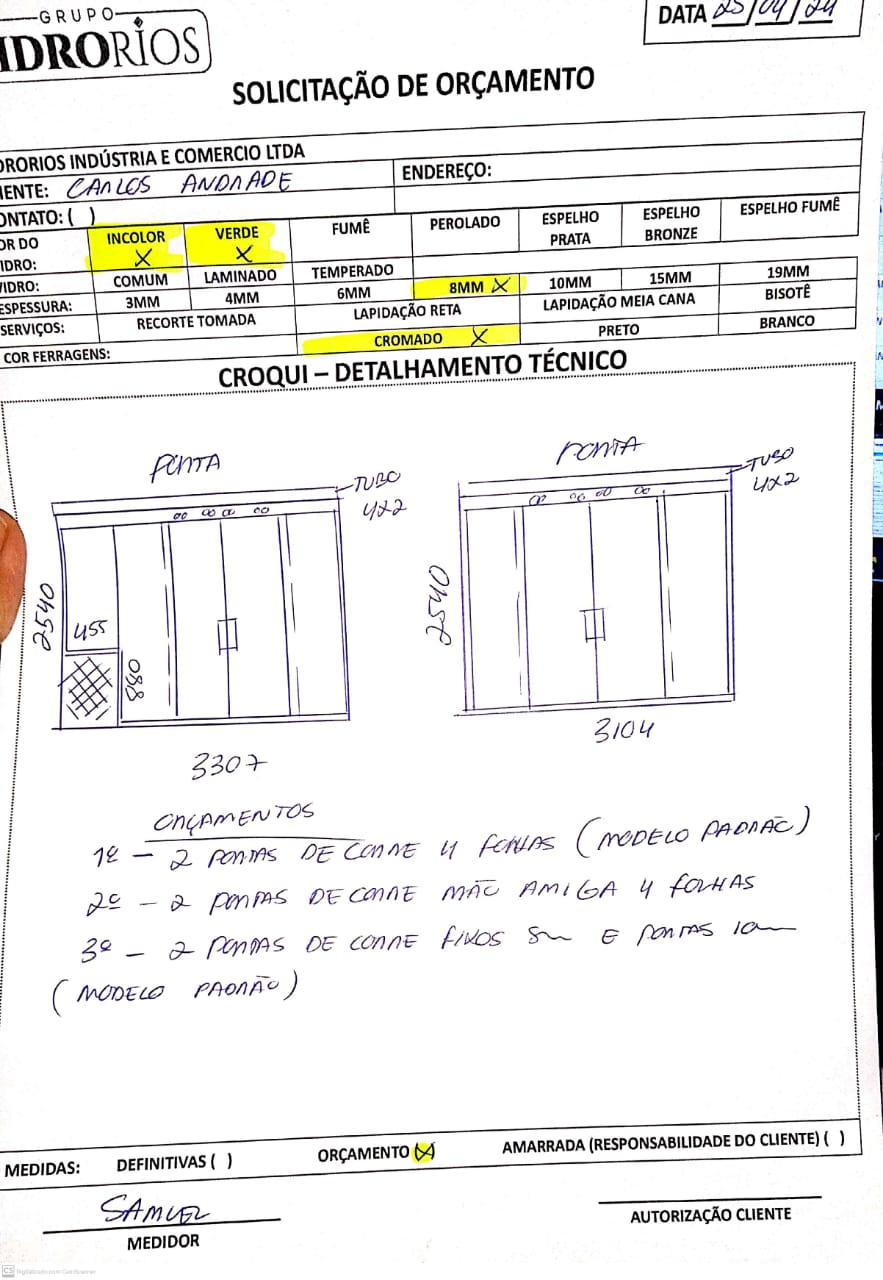 GRUPO
IDRORIOS
DATA 25/04/24
SOLICITAÇÃO DE ORÇAMENTO
DRORIOS INDÚSTRIA E COMERCIO LTDA
IENTE: CARLOS ANDRADE
ENDEREÇO:
ONTATO: ( )
OR DO IDRO:
INCOLOR X
VERDE X
FUMÊ
PEROLADO
ESPELHO PRATA
ESPELHO BRONZE
ESPELHO FUMÊ
VIDRO:
COMUM
LAMINADO
TEMPERADO
ESPESSURA:
3MM
4MM
6MM
8MM X
10MM
15MM
19MM
SERVIÇOS:
RECORTE TOMADA
LAPIDAÇÃO RETA
LAPIDAÇÃO MEIA CANA
BISOTÊ
COR FERRAGENS:
CROMADO X
PRETO
BRANCO
CROQUI – DETALHAMENTO TÉCNICO
PORTA
TUBO
4X2
2540
455
880
3307
PORTA
TUBO
4X2
2540
3104
ORÇAMENTOS
1º – 2 PORTAS DE CORRE 4 FOLHAS (MODELO PADRÃO)
2º – 2 PORTAS DE CORRE MÃO AMIGA 4 FOLHAS
3º – 2 PORTAS DE CORRE FIXOS 8m E PORTAS 10m
(MODELO PADRÃO)
MEDIDAS:
DEFINITIVAS ( )
ORÇAMENTO (X)
AMARRADA (RESPONSABILIDADE DO CLIENTE) ( )
SAMUEL
MEDIDOR
AUTORIZAÇÃO CLIENTE
CS Digitalizado com CamScanner